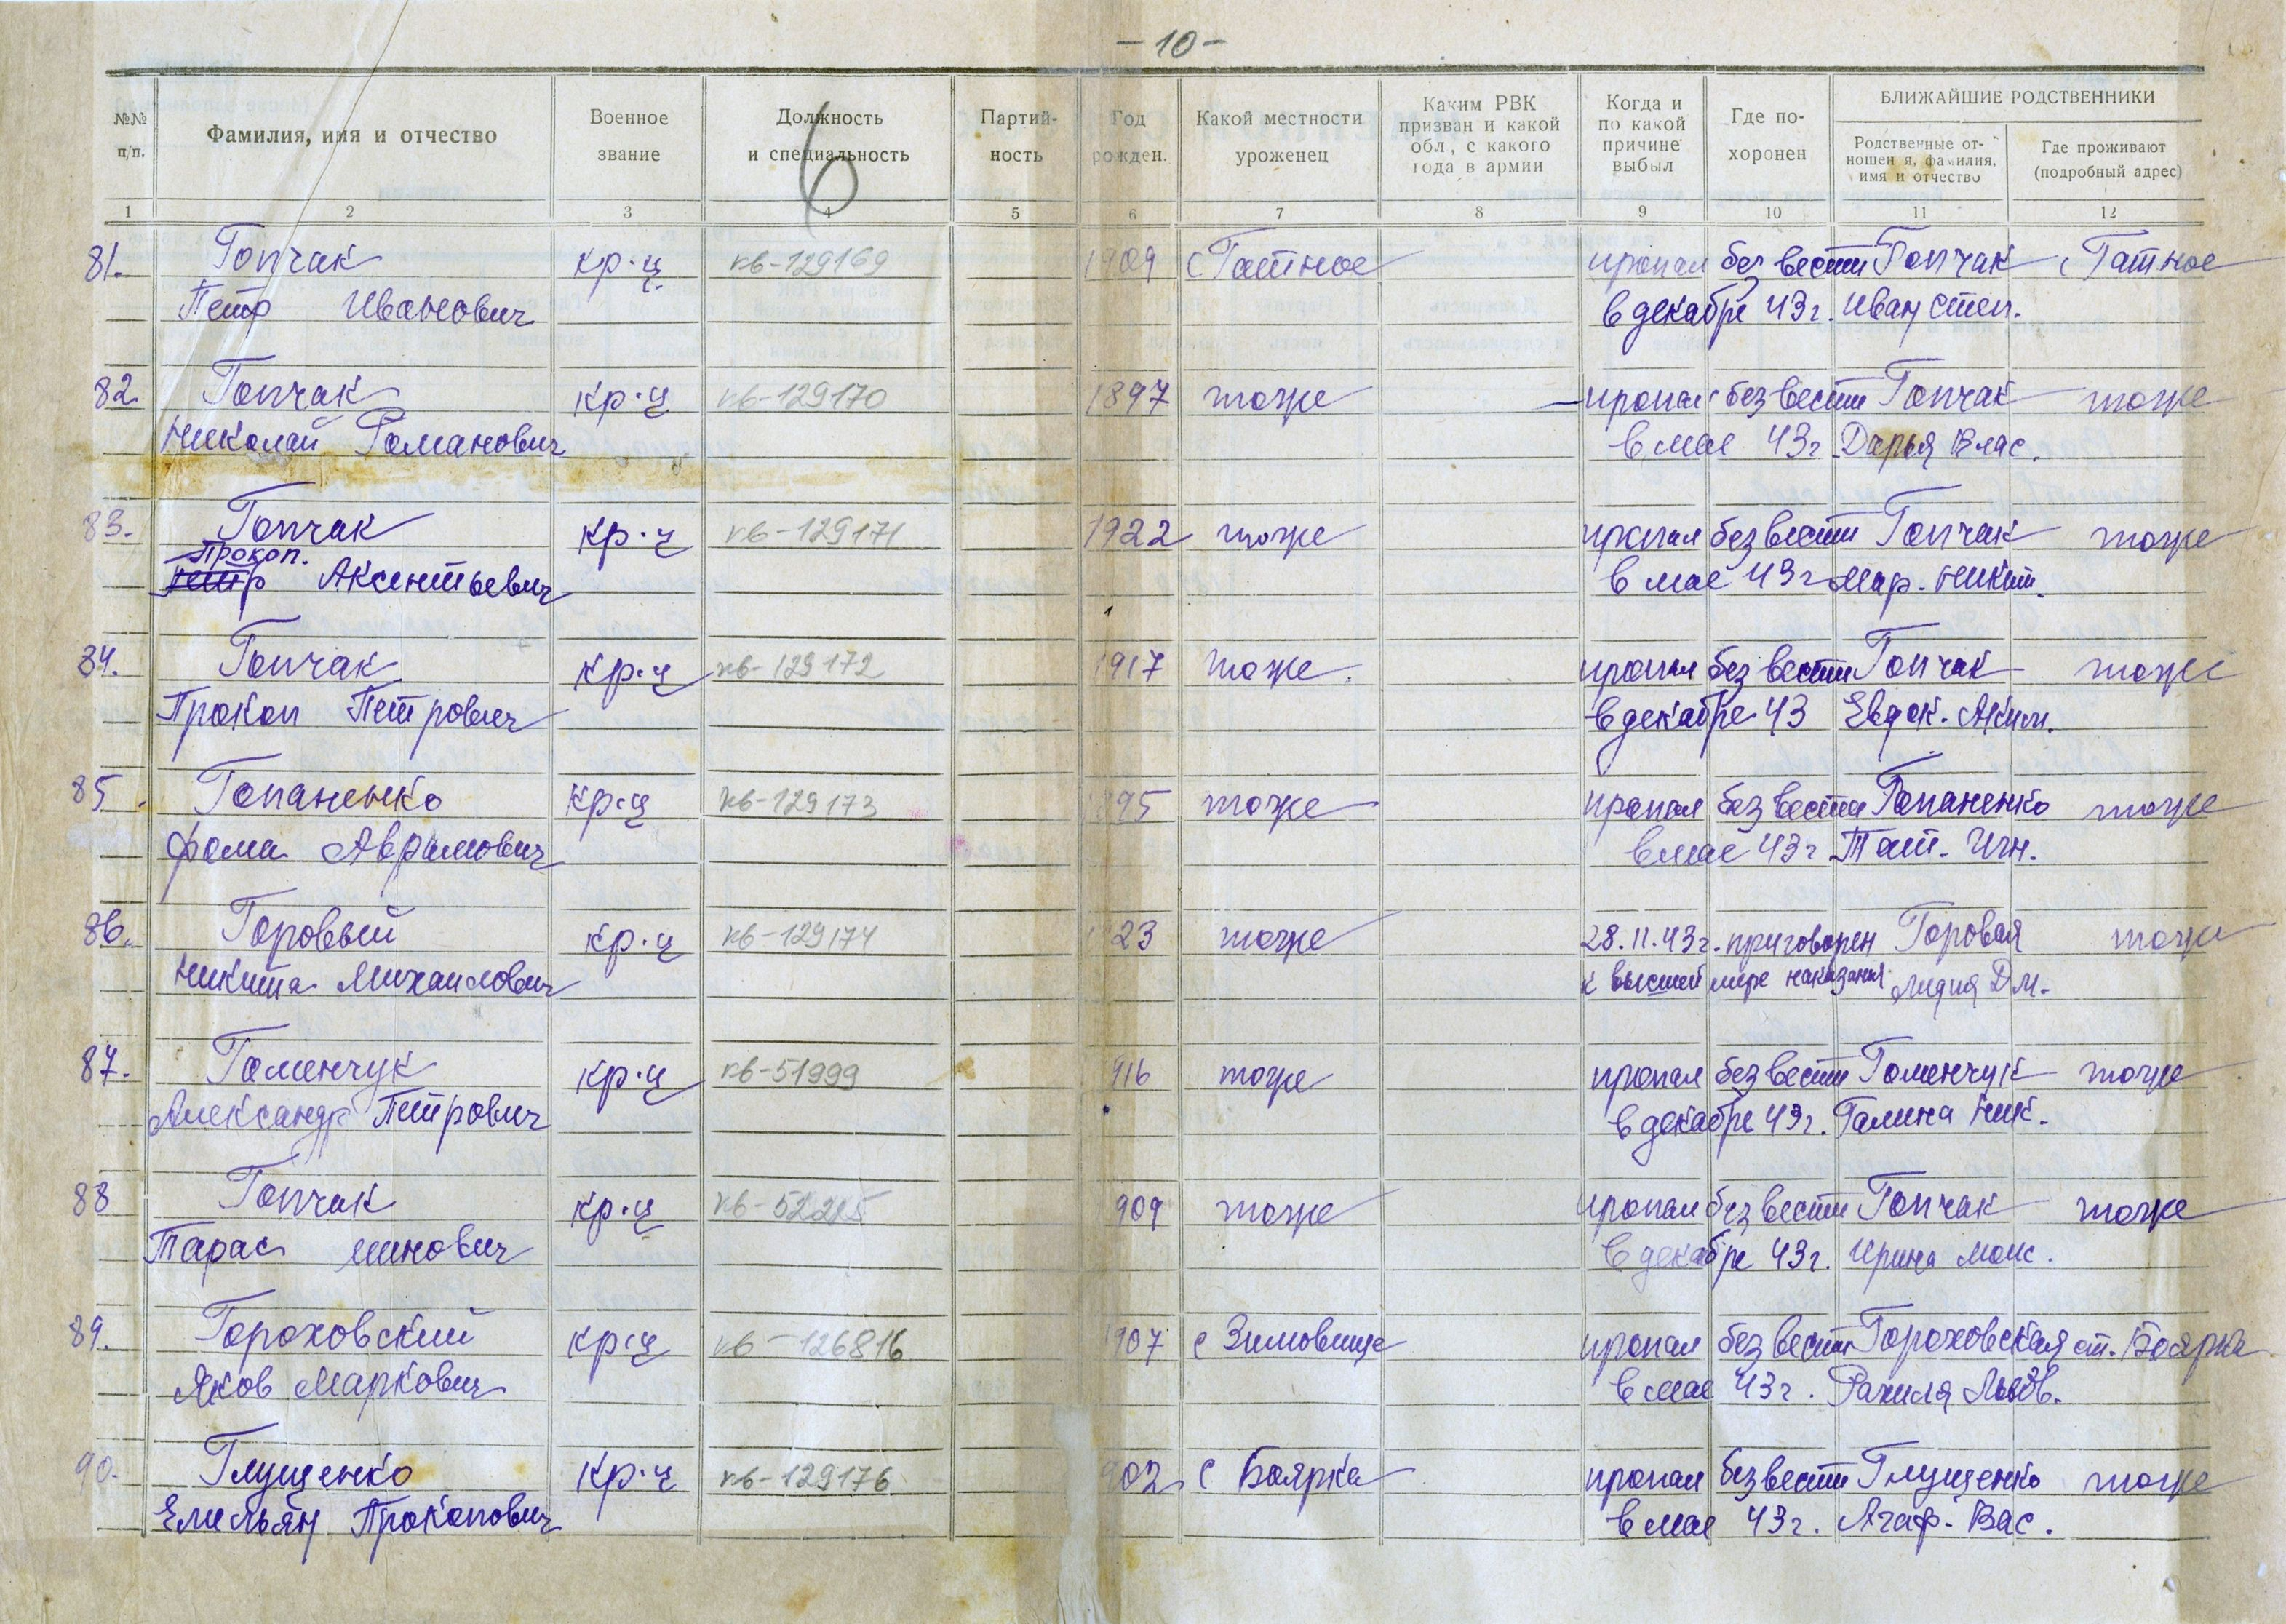 -10-
№№ п/п.
Фамилия, имя и отчество
Военное звание
Должность и специальность
Партий-ность
Год рожден.
Какой местности уроженец
Каким РВК призван и какой обл, с какого года в армии
Когда и по какой причине выбыл
Где по-хоронен
БЛИЖАЙШИЕ РОДСТВЕННИКИ
Родственные от-ношен я, фамилия, имя и отчество
Где проживают (подробный адрес)
6
1 2 3 4 5 6 7 8 9 10 11 12
81. Гопчак кр-ц кв-129169 1909 с Гатное пропал без вести Гопчак с Гатное
Петр Иванович в декабре 43г. Иван Степ.
82. Гопчак кр-ц кв-129170 1897 тоже пропал без вести Гопчак тоже
Николай Романович в мае 43г Дарья Влас.
83. Гопчак кр-ц кв-129171 1922 тоже пропал без вести Гопчак тоже
Прокоп.
Петр Аксентьевич в мае 43г Мар. Никит.
84. Гопчак кр-ц кв-129172 1917 тоже пропал без вести Гопчак тоже
Прокоп Петрович в декабре 43 Евдок. Аким.
85. Гопаненко кр-ц кв-129173 895 тоже пропал без вести Гопаненко тоже
Фома Аврамович в мае 43г Тат. Игн.
86. Горовый кр-ц кв-129174 23 тоже 28.11.43г. приговорен Горовая тоже
Никита Михаилович к высшей мере наказания Лидия Дм.
87. Гоменчук кр-ц кв-51999 916 тоже пропал без вести Гоменчук тоже
Александр Петрович в декабре 43г. Галина Ник.
88 Гопчак кр-ц 909 тоже пропал без вести Гопчак тоже
Тарас Минович в декабре 43г. Ирина Моис.
89. Гороховский кр-ц кв-126816 907 с Зимовище пропал без вести Гороховская ст. Боярка
Яков Маркович в мае 43г. Рахиля Львов.
90. Глущенко кр-ц кв-129176 902 с Боярка пропал без вести Глущенко тоже
Емельян Прокопович в мае 43г. Агаф. Вас.